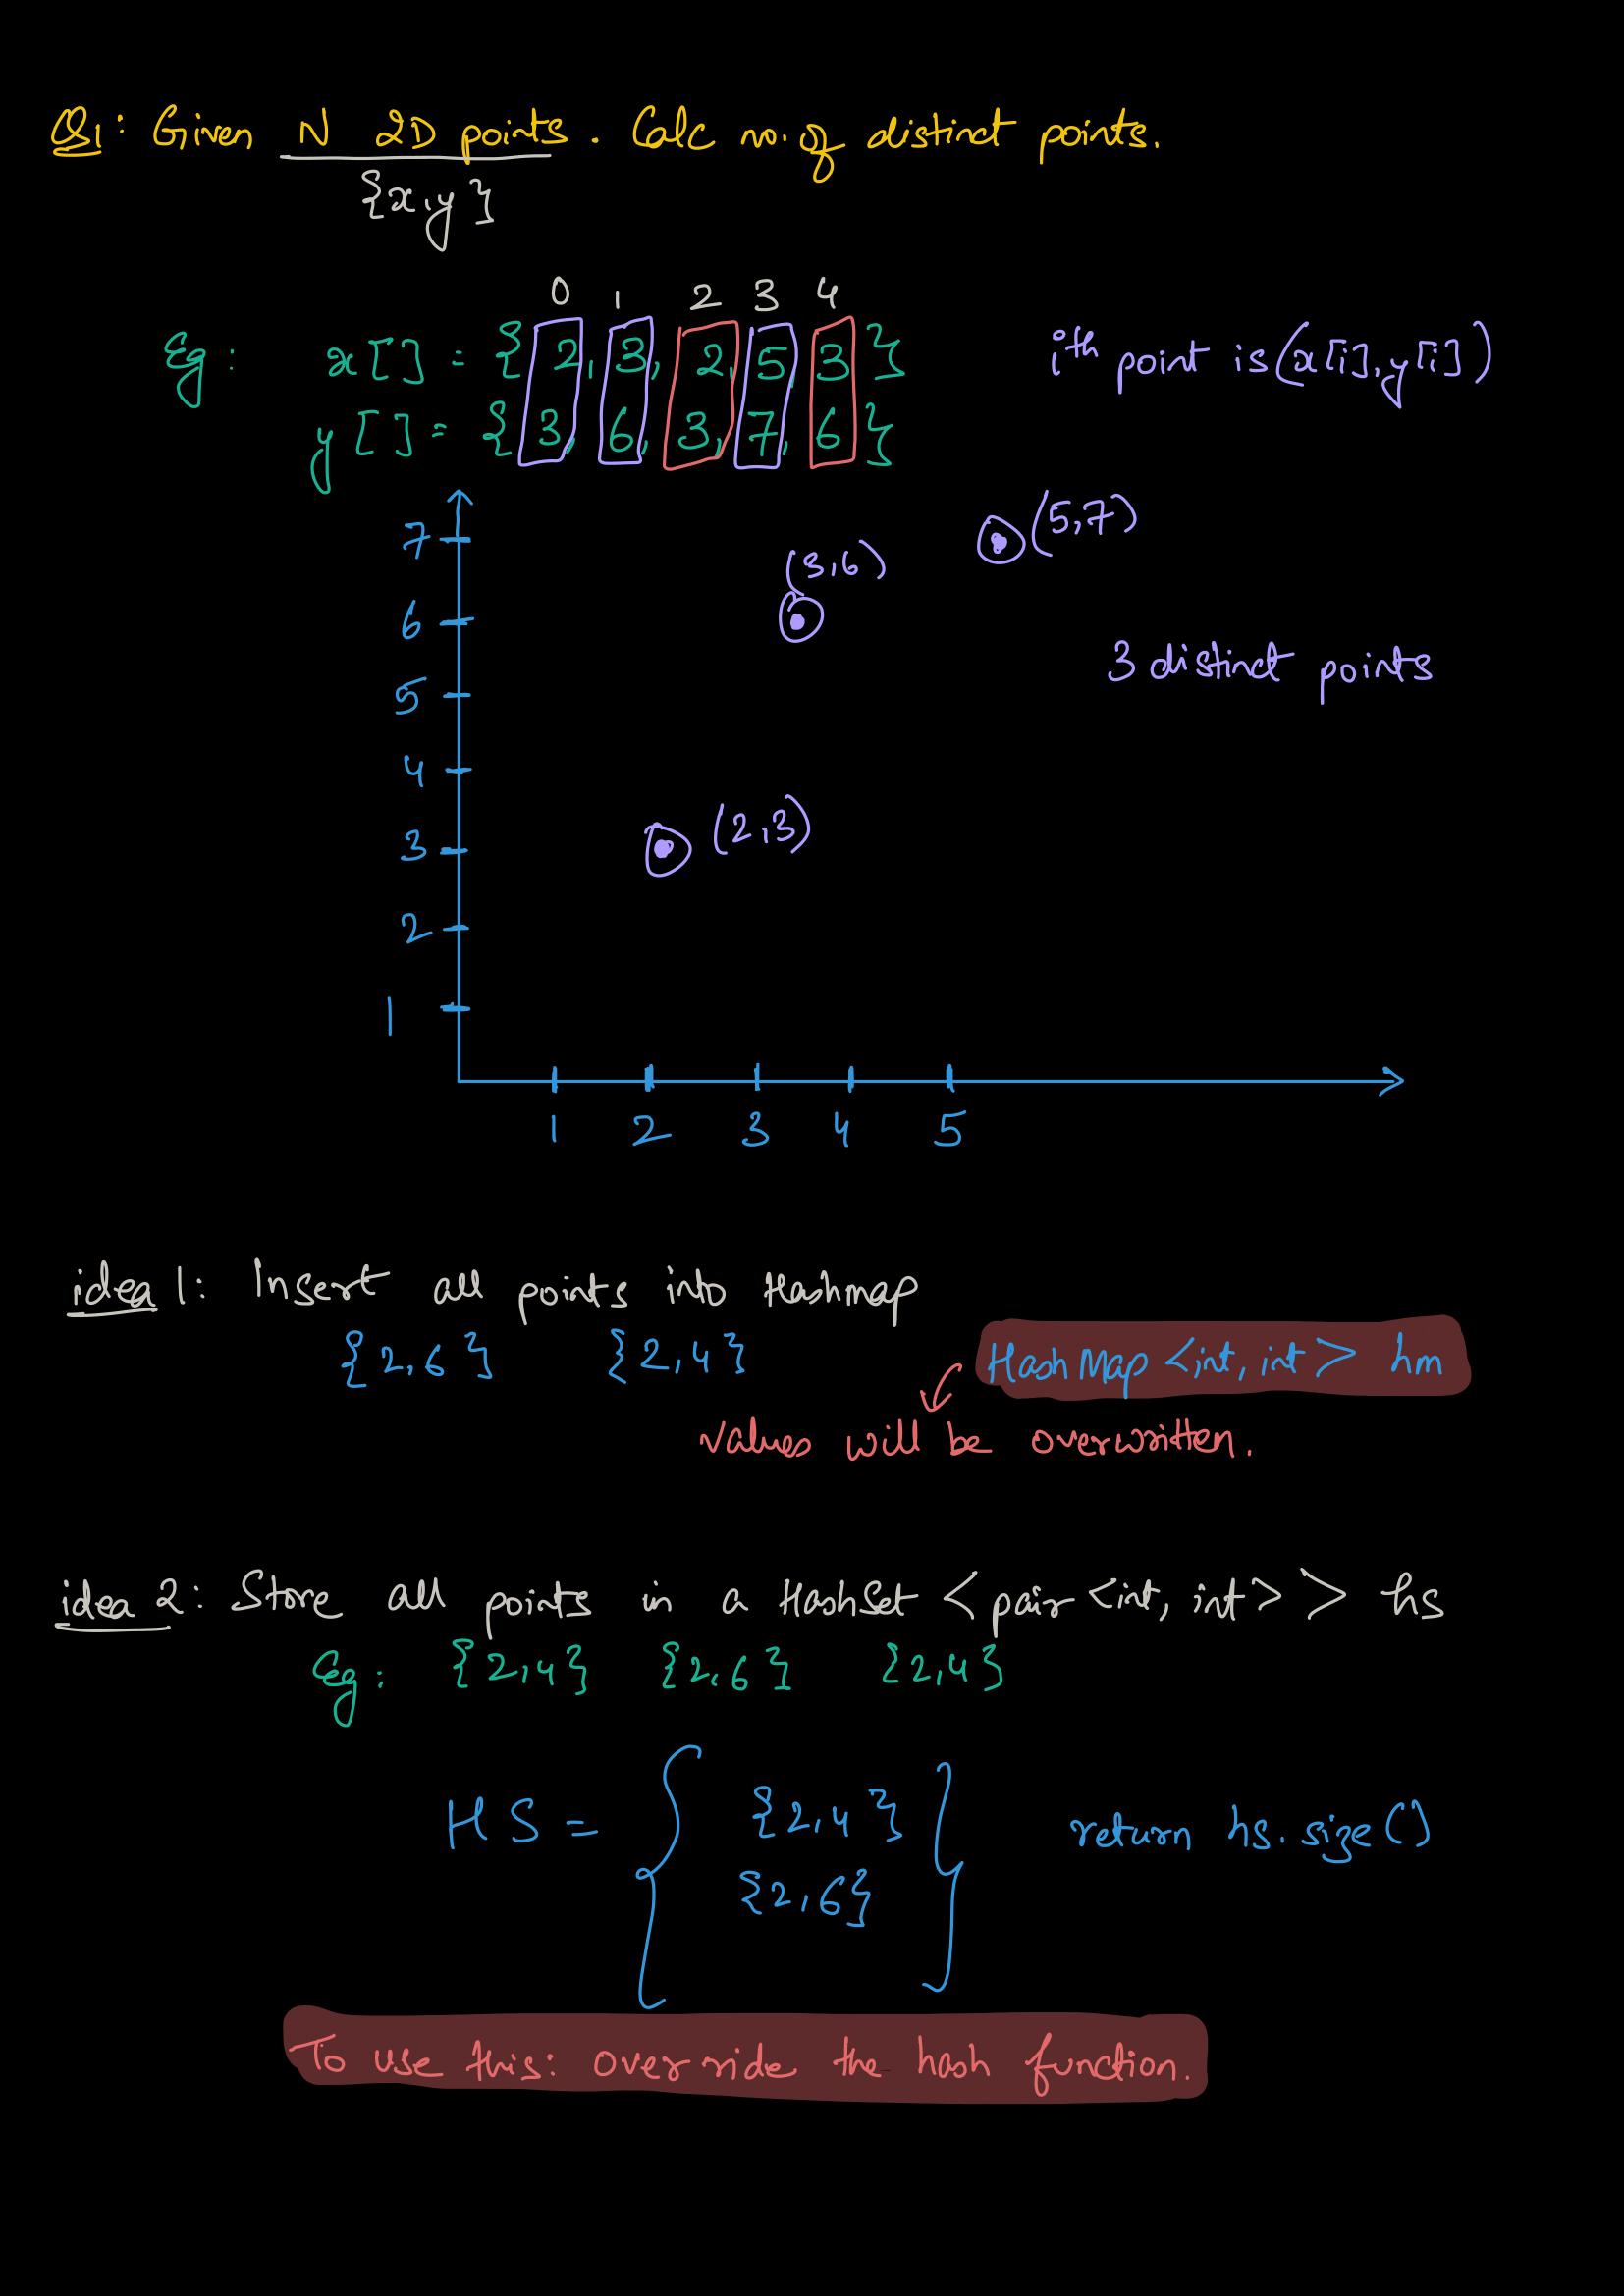 Q1: Given N 2D points. Calc no. of distinct points.
{x,y}
0 1 2 3 4
Eg: x[] = {2, 3, 2, 5, 3} ith point is (x[i], y[i])
y[] = {3, 6, 3, 7, 6}
(5,7)
7
(3,6)
6
3 distinct points
5
4
(2,3)
3
2
1
1 2 3 4 5
idea 1: Insert all points into Hashmap
{2,6} {2,4} HashMap <int, int> hm
values will be overwritten.
idea 2: Store all points in a HashSet <pair <int, int>> hs
Eg: {2,4} {2,6} {2,4}
HS = { {2,4} } return hs.size()
{2,6}
To use this: override the hash function.